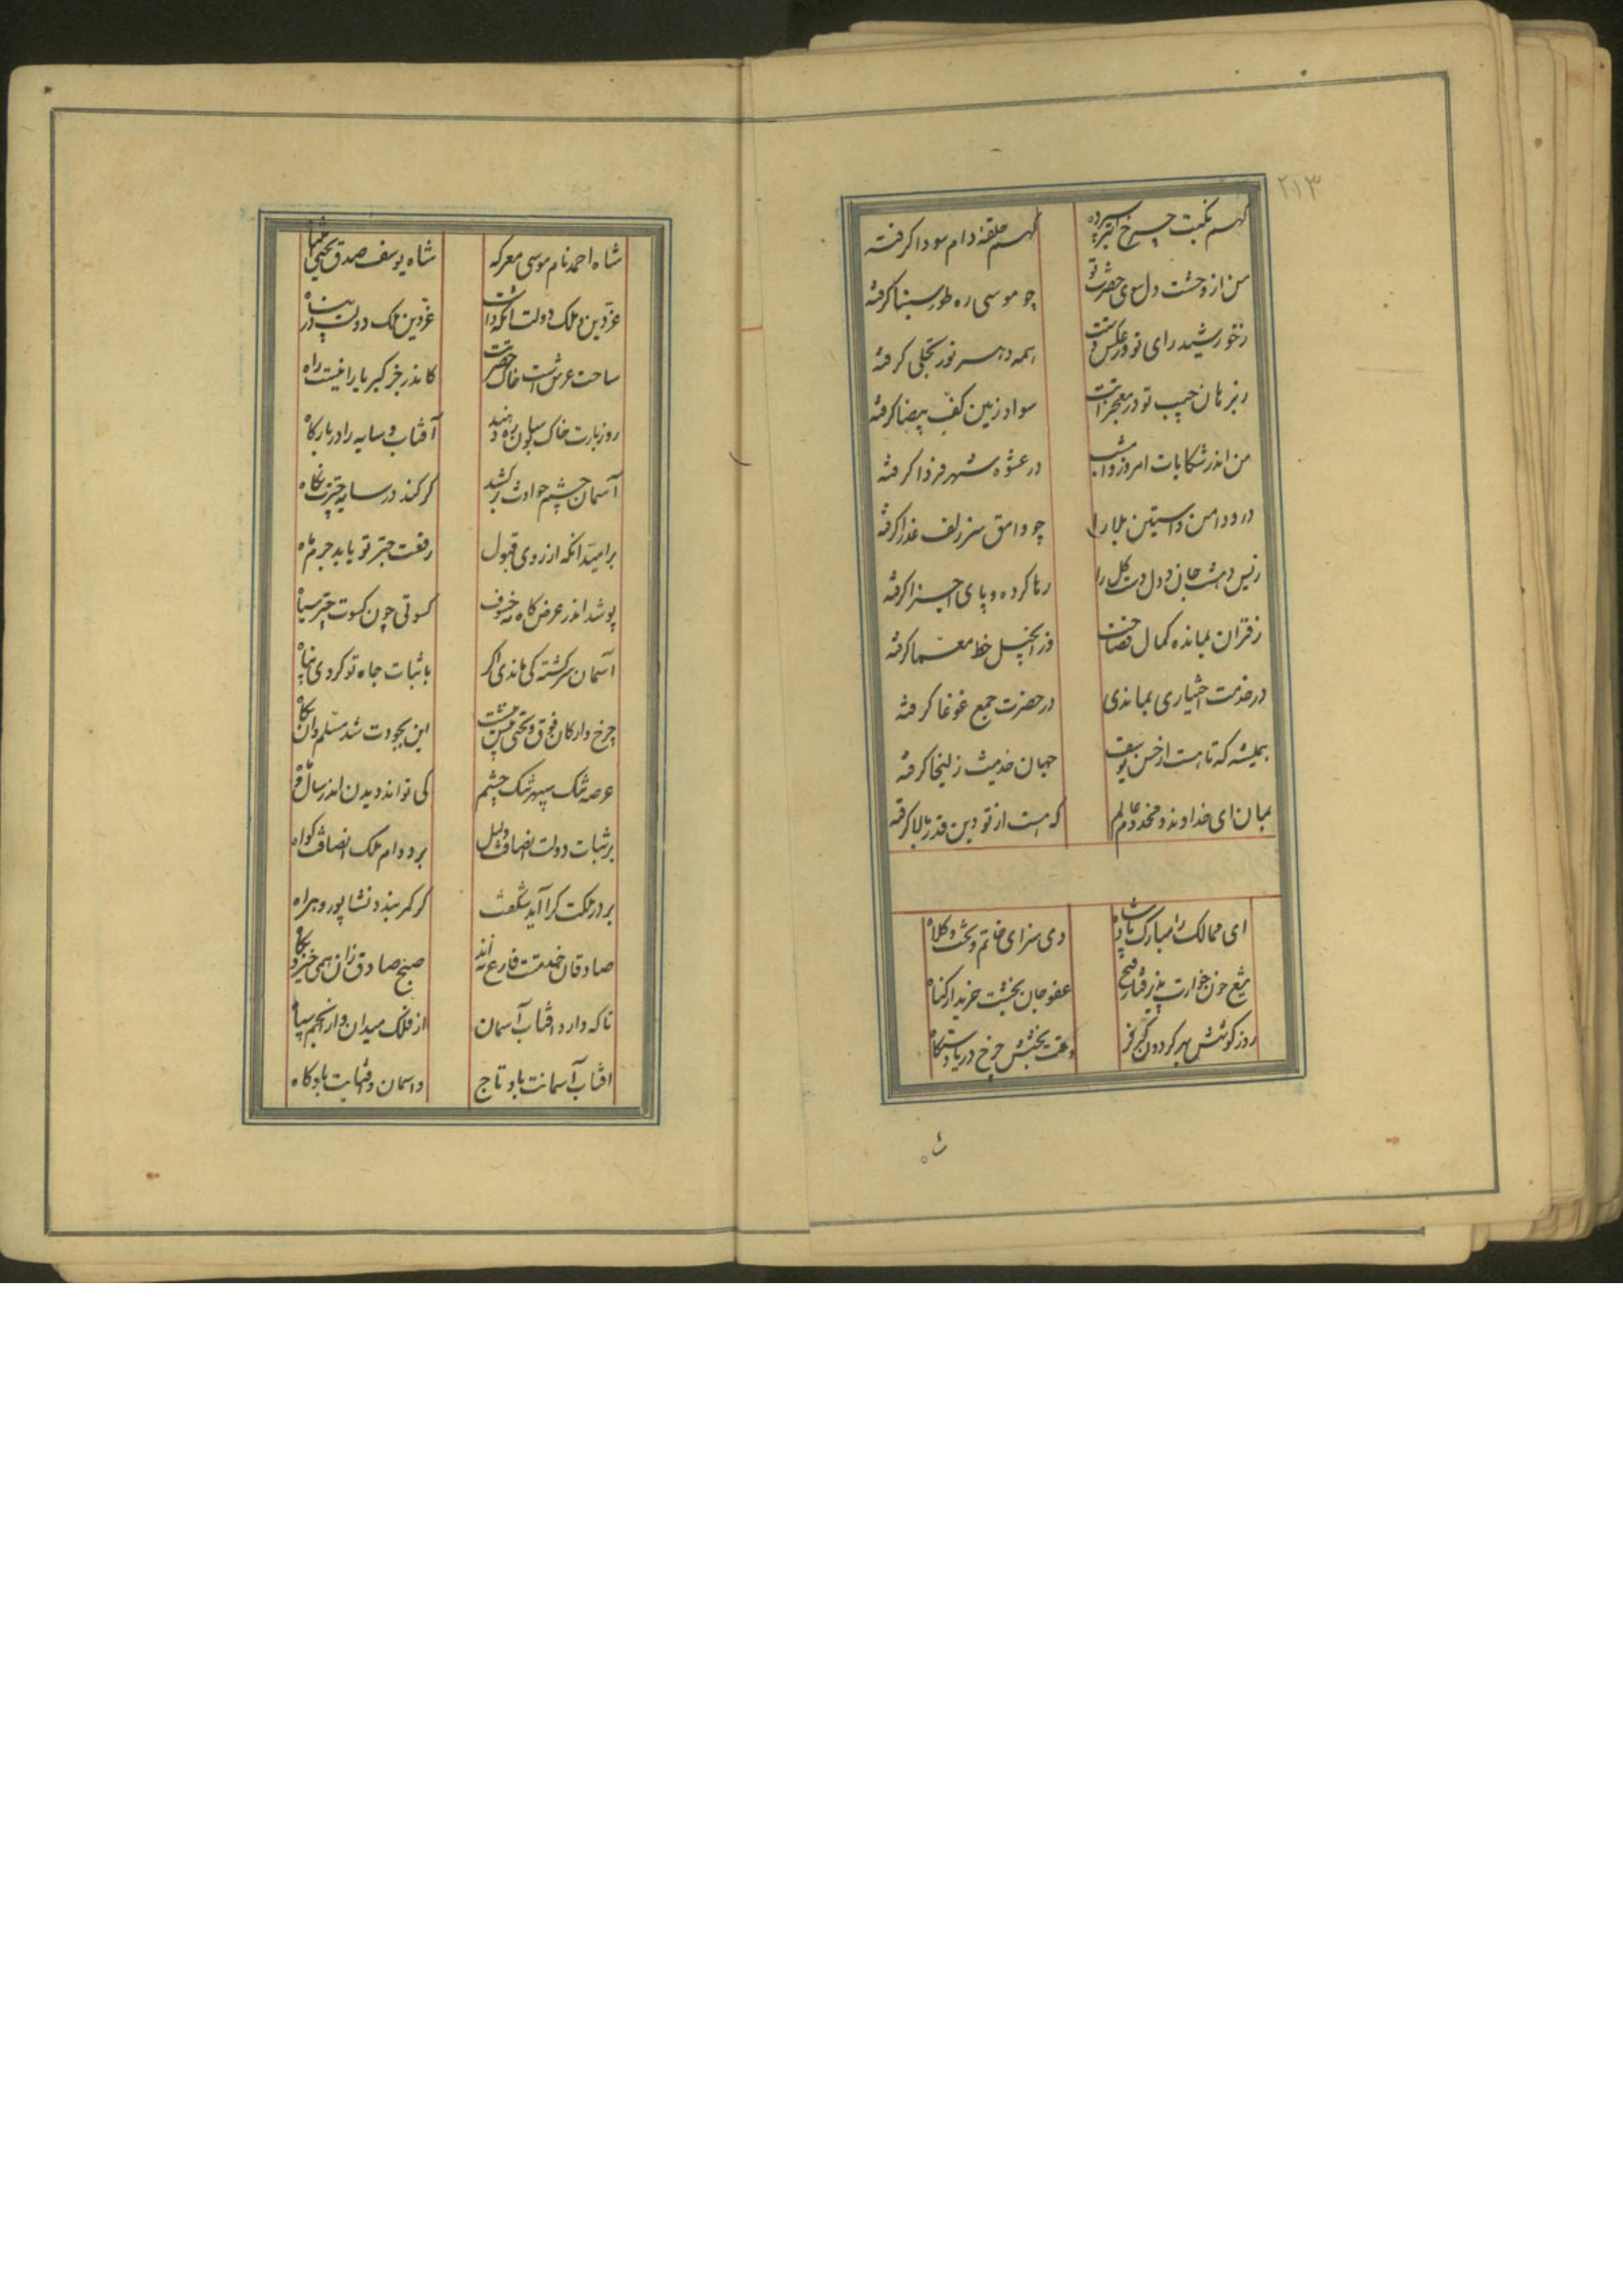 ۲۱۳
گهم نکبت چرخ اختر سپرده
گهم حلقه دام سودا کرفته
من از وحشت دل سوی حضرت تو
چو موسی ره طور سینا کرفته
زخورشید رای تو در عکس
همه دهر نور تجلی کرفته
زبرهان جیب تو در معجزاتت
سواد زمین کف بیضا کرفته
من اندر شکایات امروز وامشب
در عشوه شهر فردا کرفته
درود امن واستین بلا را
چو وامق سر زلف عذرا کرفته
دل وت کل را
رها کرده و پای اجزا کرفته
زقران بمانده کمال فصاحت
وز انجیل خط معما کرفته
در خدمت اختیاری بماندی
در حضرت جمع غوغا کرفته
همیشه که تا هست از حسن یوسف
جهان حدیث زلیخا کرفته
بمان ای خداوند و مخدوم عالم
که هست از تو دین قدر بالا کرفته
ای ممالک را مبارک پادشاه
وی سزای خاتم و تخت و کلاه
تیغ خون خوارت پذیرفتار فتح
عفو جان بخشت خریدار کناه
روز کوشش ببر کردون کر و فر
وقت بخشش چرخ دریا دستکاه
شاه احمد نام موسی معرکه
شاه یوسف صدق یحیی
عز دین و ملک و دولت انکه داشت
عز دین ملک و دولت در پناه
ساحت عرش است خاک حضرتت
کاندر جز کبریا را نیست راه
روز بارت خاک بره دهند
آفتاب و سایه را در بارکاه
آسمان چشم حوادث برکشد
کر کند در سایه چترت نکاه
بر امید انکه از روی قبول
رفعت چتر تو یابد جرم ماه
پوشد اندر عرض کاه خسوف
کسوتی چون کسوت چتر سیاه
آسمان سرکشته کی ماندی اکر
با ثبات جاه تو کردی پناه
چرخ وارکان فوق و تحتی
این بجودت شد مسلم وان
عرصه تنک سپهر تنک چشم
کی تواند دیدن اندر سال و ماه
بر ثبات دولت انصافت دلیل
بر دوام ملک انصافت کواه
بر در ملکت کرا آید شکفت
کر کمر بندد نشاپور و هراه
صادقان خدمتت فارغ نه اند
صبح صادق زان همی خیزد پکاه
تا که دارد افتاب آسمان
از فلک میدان واز انجم سپاه
افتاب آسمانت باد تاج
واسمان افتابت باد کاه